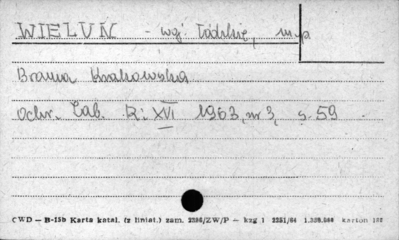 WIELUŃ - woj. łódzkie, m-p
Brama Krakowska
Ochr. Zab. R: XVI 1963, nr 3, s. 59.
CWD — B-15b Karta katal. (z liniat.) zam. 2386/ZW/P — kzg 1 2251/64 1.328.566 karton 182